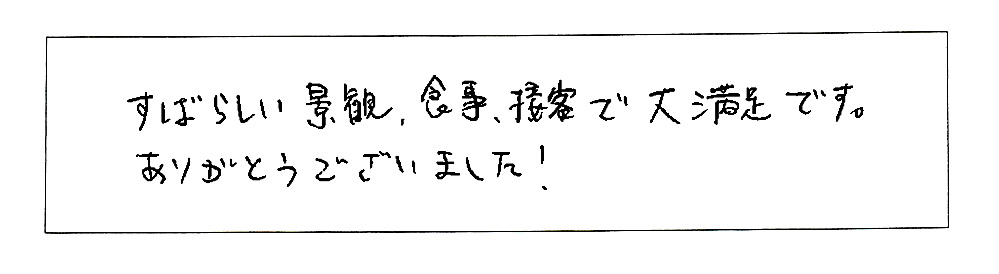 すばらしい景観、食事、接客で大満足です。
ありがとうございました!